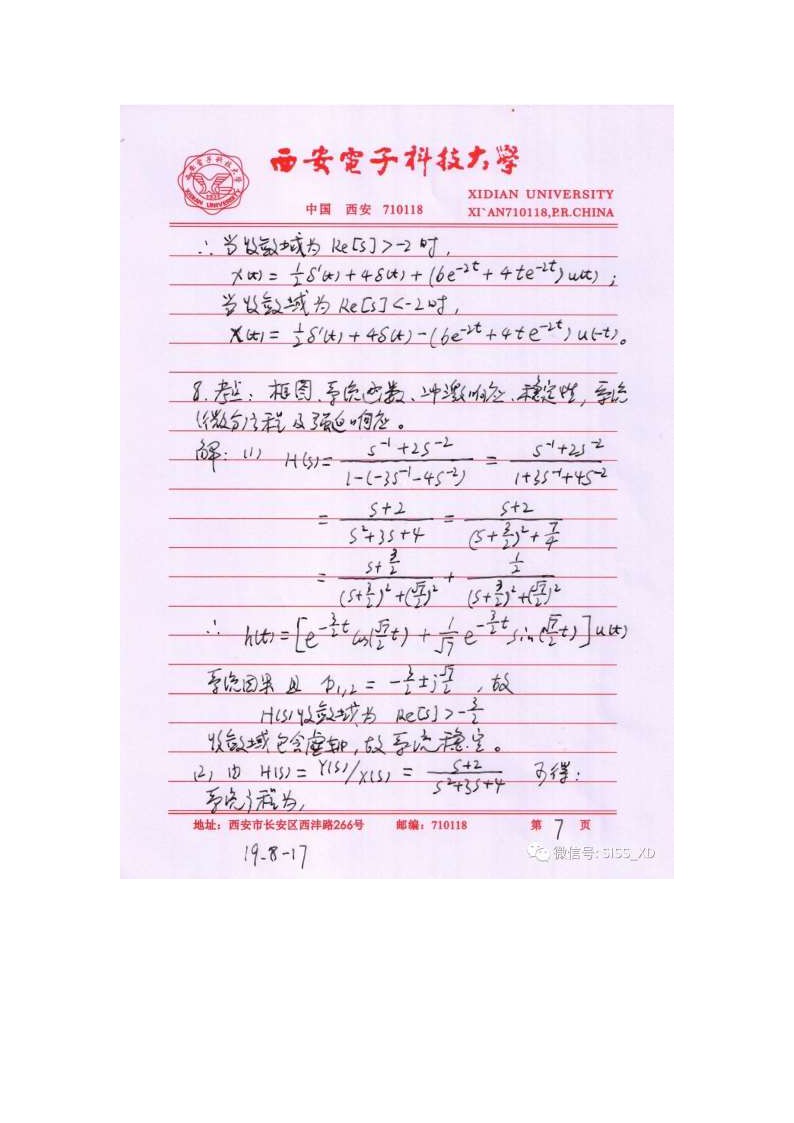 西安電子科技大學
XIDIAN UNIVERSITY
中国 西安 710118
XI`AN710118,P.R.CHINA
∴ 当收敛域为 Re[s]>-2 时,
x(t) = 1/2 δ'(t) + 4δ(t) + (6e^{-2t} + 4te^{-2t}) u(t) ;
当收敛域为 Re[s]<-2时,
x(t) = 1/2 δ'(t) + 4δ(t) - (6e^{-2t} + 4te^{-2t}) u(-t)。
8. 考点: 框图、系统函数、冲激响应、稳定性, 系统
微分方程及强迫响应。
解: (1) H(s) = (s^{-1} + 2s^{-2}) / (1-(-3s^{-1}-4s^{-2})) = (s^{-1}+2s^{-2}) / (1+3s^{-1}+4s^{-2})
= (s+2) / (s²+3s+4) = (s+2) / ((s+3/2)²+7/4)
= (s+3/2) / ((s+3/2)²+(√7/2)²) + (1/2) / ((s+3/2)²+(√7/2)²)
∴ h(t) = [e^{-3/2 t} cos(√7/2 t) + 1/√7 e^{-3/2 t} sin(√7/2 t)] u(t)
系统因果且 p1,2 = -3/2 ± j√7/2 , 故
H(s)收敛域为 Re[s] > -3/2
收敛域包含虚轴, 故系统稳定。
(2) 由 H(s) = Y(s)/X(s) = (s+2) / (s²+3s+4) 可得:
系统方程为,
地址:西安市长安区西沣路266号 邮编:710118 第 7 页
19-8-17
微信号: SISS_XD